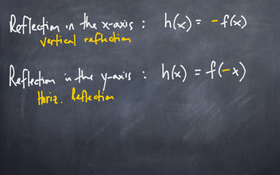 Reflection in the x-axis : h(x) = -f(x)
vertical reflection
Reflection in the y-axis : h(x) = f(-x)
Horiz. Reflection